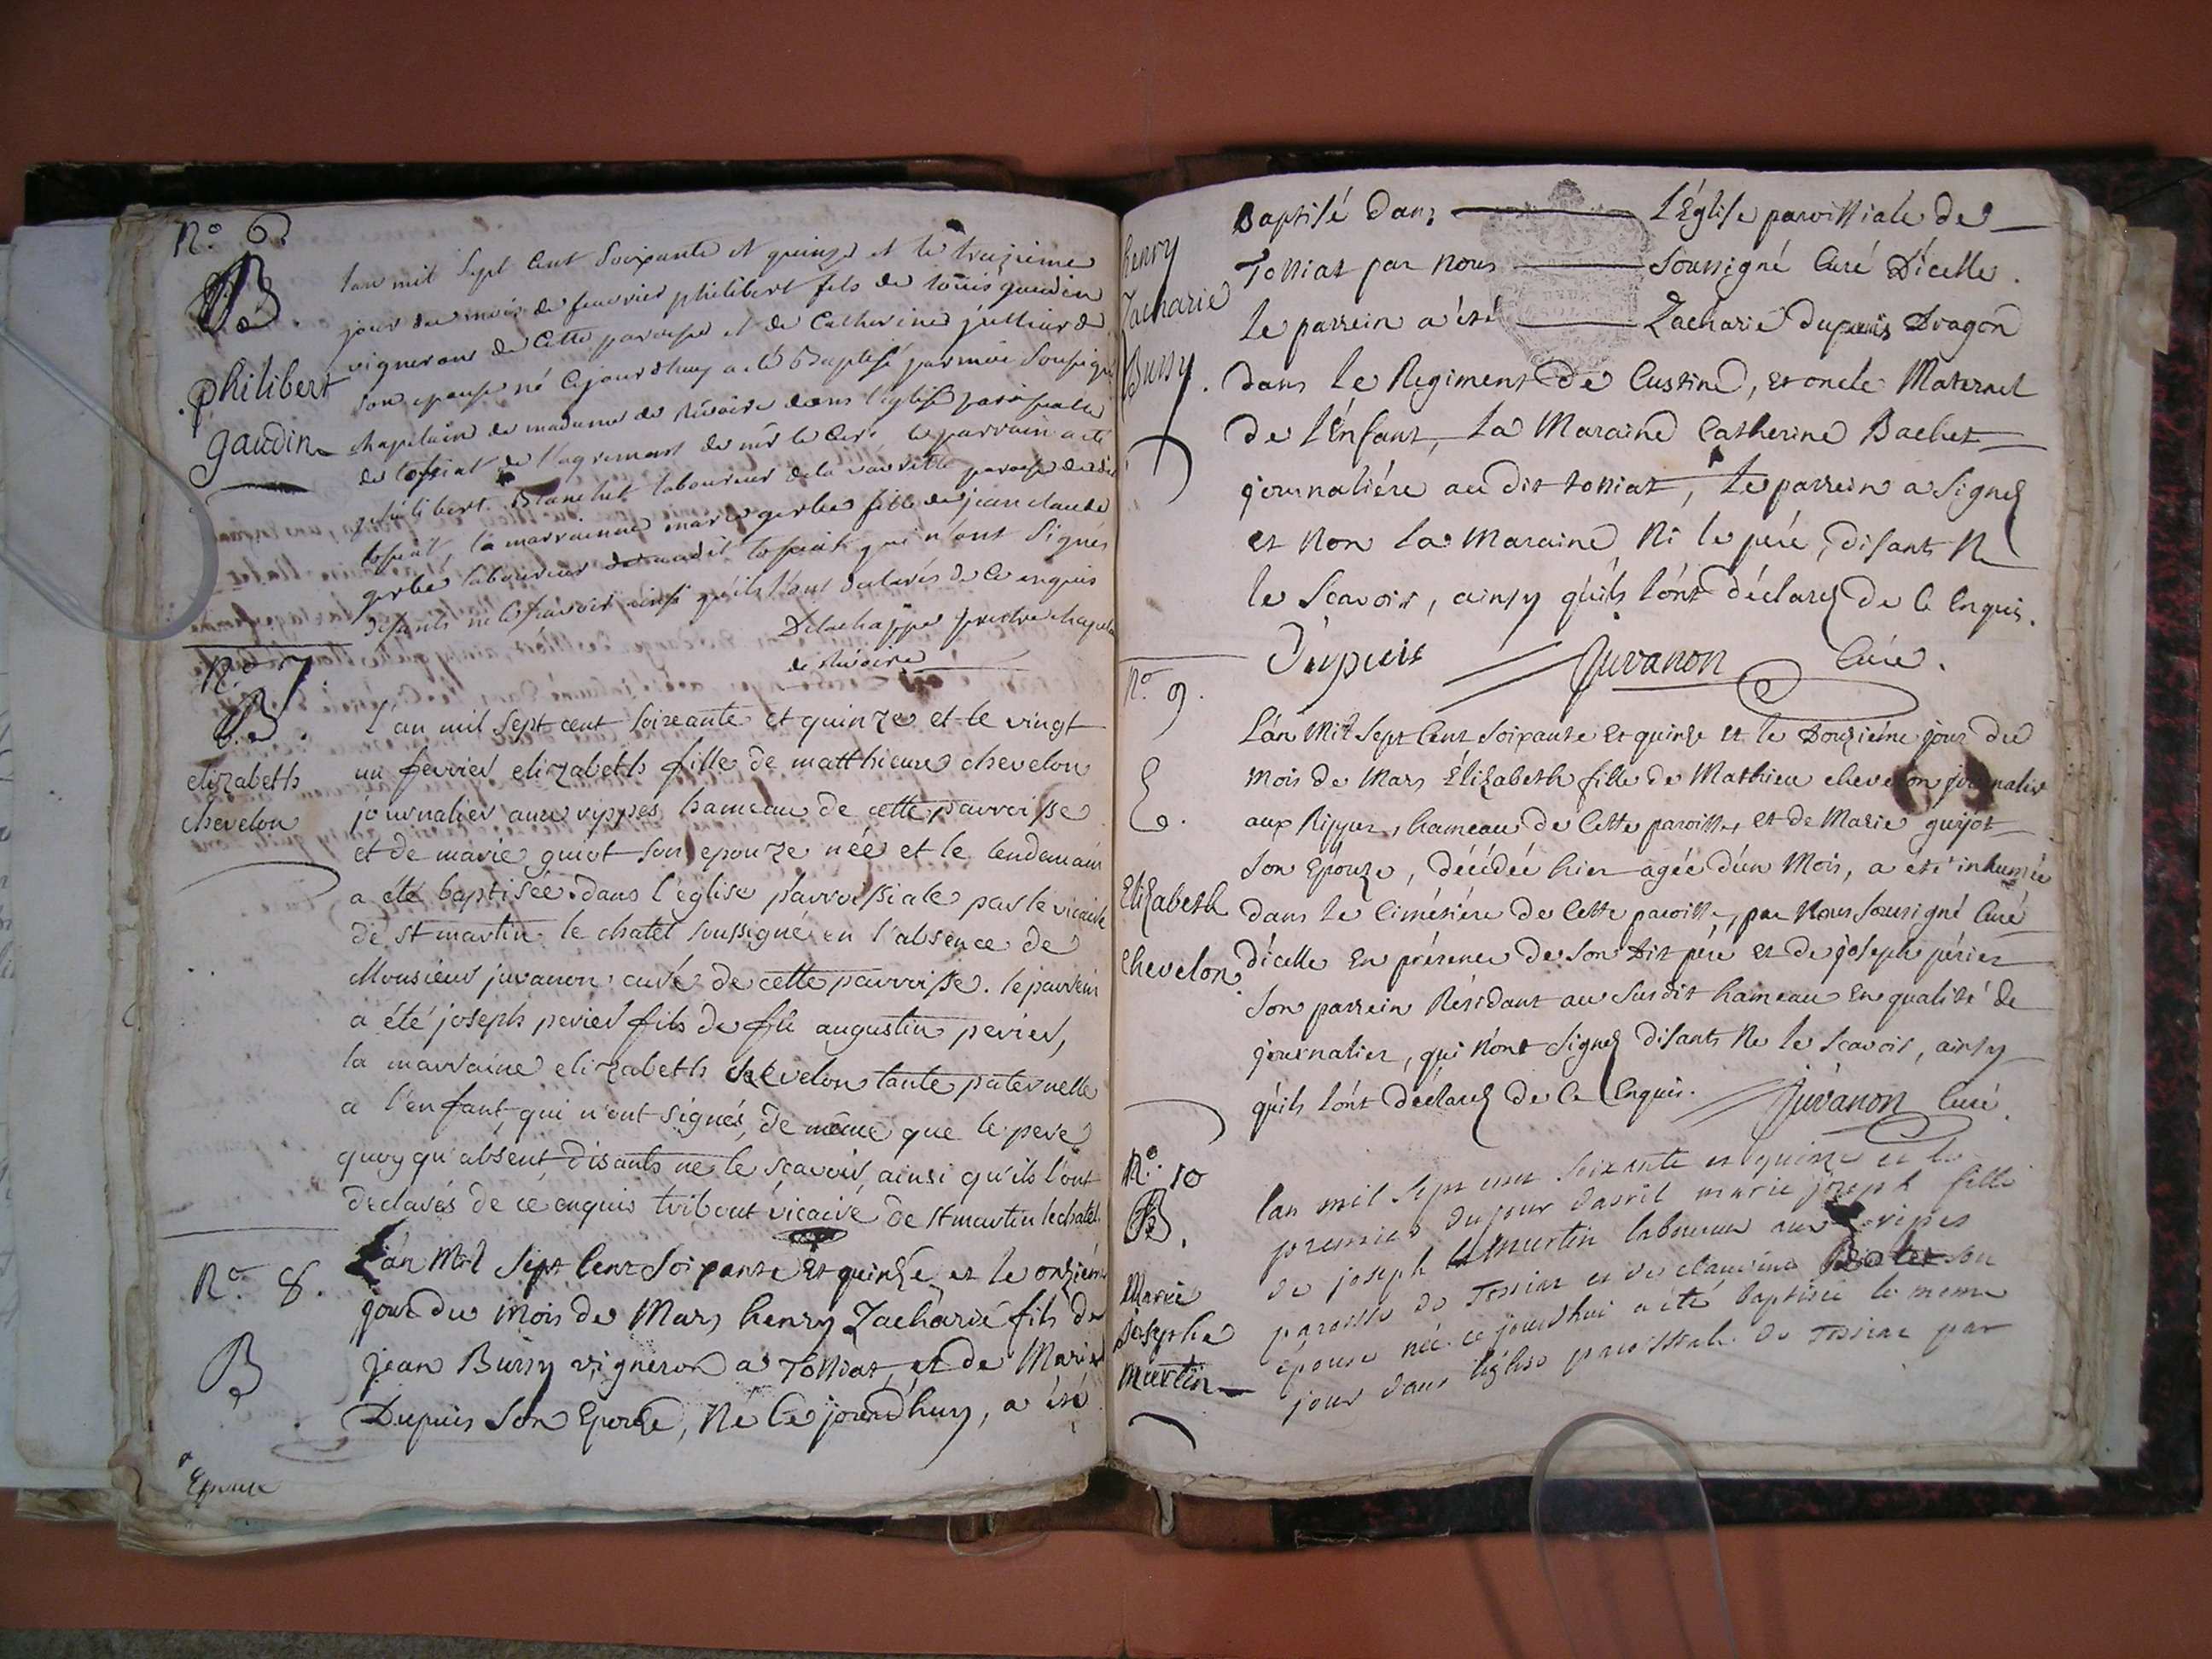 N.o 6.
B
philibert
gaudin
lan mil sept cent soixante et quinze et le treizieme
jour du mois de feuvrier philibert fils de loüis gaudin
vigneront de cette paroisse et de Catherine jullier de
son epouse né cejourdhuy a eté Baptisé par moi soussigné
chapelain de madame de Rivoire dans l'eglise paroissialle
de tossiat de l'agrement de mr le Curé, le parrain a eté
philibert Blanchet laboureur de la paroisse dudit
tossiat, la marrainne marie gerbe fille de jean claude
gerbe laboureur audit tossiat qui n'ont signés
disants ne le scavoir ainsi qu'ils l'ont declarés de ce enquis
Delachappe prestre chapelain
de Rivoire
N.o 7.
B.
elizabeth
chevelon
L'an mil sept cent soixante et quinze et le vingt
un fevrier elizabeth fille de matthieu chevelon
journalier aux rippes hameau de cette parroisse
et de marie guiot son epouze née et le lendemain
a été baptisée dans l'eglise parroissiale par le vicaire
de st martin le chatel soussigné en l'absence de
Monsieur juvanon curé de cette parroisse. le parrein
a été joseph perier fils de fû augustin perier,
la marraine elizabeth chevelon tante paternelle
a l'enfant, qui n'ont signés, de même que le pere
quoy qu'absent disants ne le scavoir, ainsi qu'ils l'ont
declarés de ce enquis tribout vicaire de st martin le chatel
N.o 8.
B
L'an Mil Sept Cent Soixante Et quinze et le onziéme
jour du mois de Mars henry Zacharie fils de
jean Bussy vigneron a Tossiat, et de Marie
Dupuis Son Epouze, Né Ce jourdhuy, a été
Epouse
henry
Zacharie
Bussy.
Baptisé dans L'Église paroissiale de
Tossiat par Nous Soussigné Curé D'icelle.
le parrein a été Zacharie dupuis Dragon
dans le Regiment de Custine, et oncle Maternel
de L'Enfant, La Maraine Catherine Bachet
journaliére au dit tossiat, Le parrein a Signé
et Non la Maraine Ni le pére, disants Ne
le Scavoir, ainsy qu'ils l'ónt déclaré de Ce Enquis.
Dupuis Juvanon Curé.
N.o 9.
E.
Elizabeth
Chevelon.
L'án Mil Sept Cent Soixante Et quinze et le Douziéme jour du
mois de Mars Elizabeth fille de Mathieu chevelon journalier
aux Rippes, hameau de Cette paroisse, et de Marie guyot
Son Epouze, décédée hier agée d'un Mois, a été inhumée
dans le Cimétiére de Cette paroisse, par Nous Soussigné Curé
d'icelle En présence de Son dit pére et de joseph périer
Son parrein Résidant au Susdit hameau En qualité de
journalier, qui n'ont Signé disants Ne le Scavoir, ainsy
qu'ils l'ónt déclaré de Ce Enquis. Juvanon Curé.
N.o 10
B.
Marie
Josephe
Martin
lan mil sept cent soixante et quinze et le
premier du jour davril marie joseph fille
de joseph martin laboureur aux ripes
paroisse de Tossiat et de claudine son
épouse née ce jourdhui a été baptisée le meme
jour dans léglise paroissiale de Tossiat par